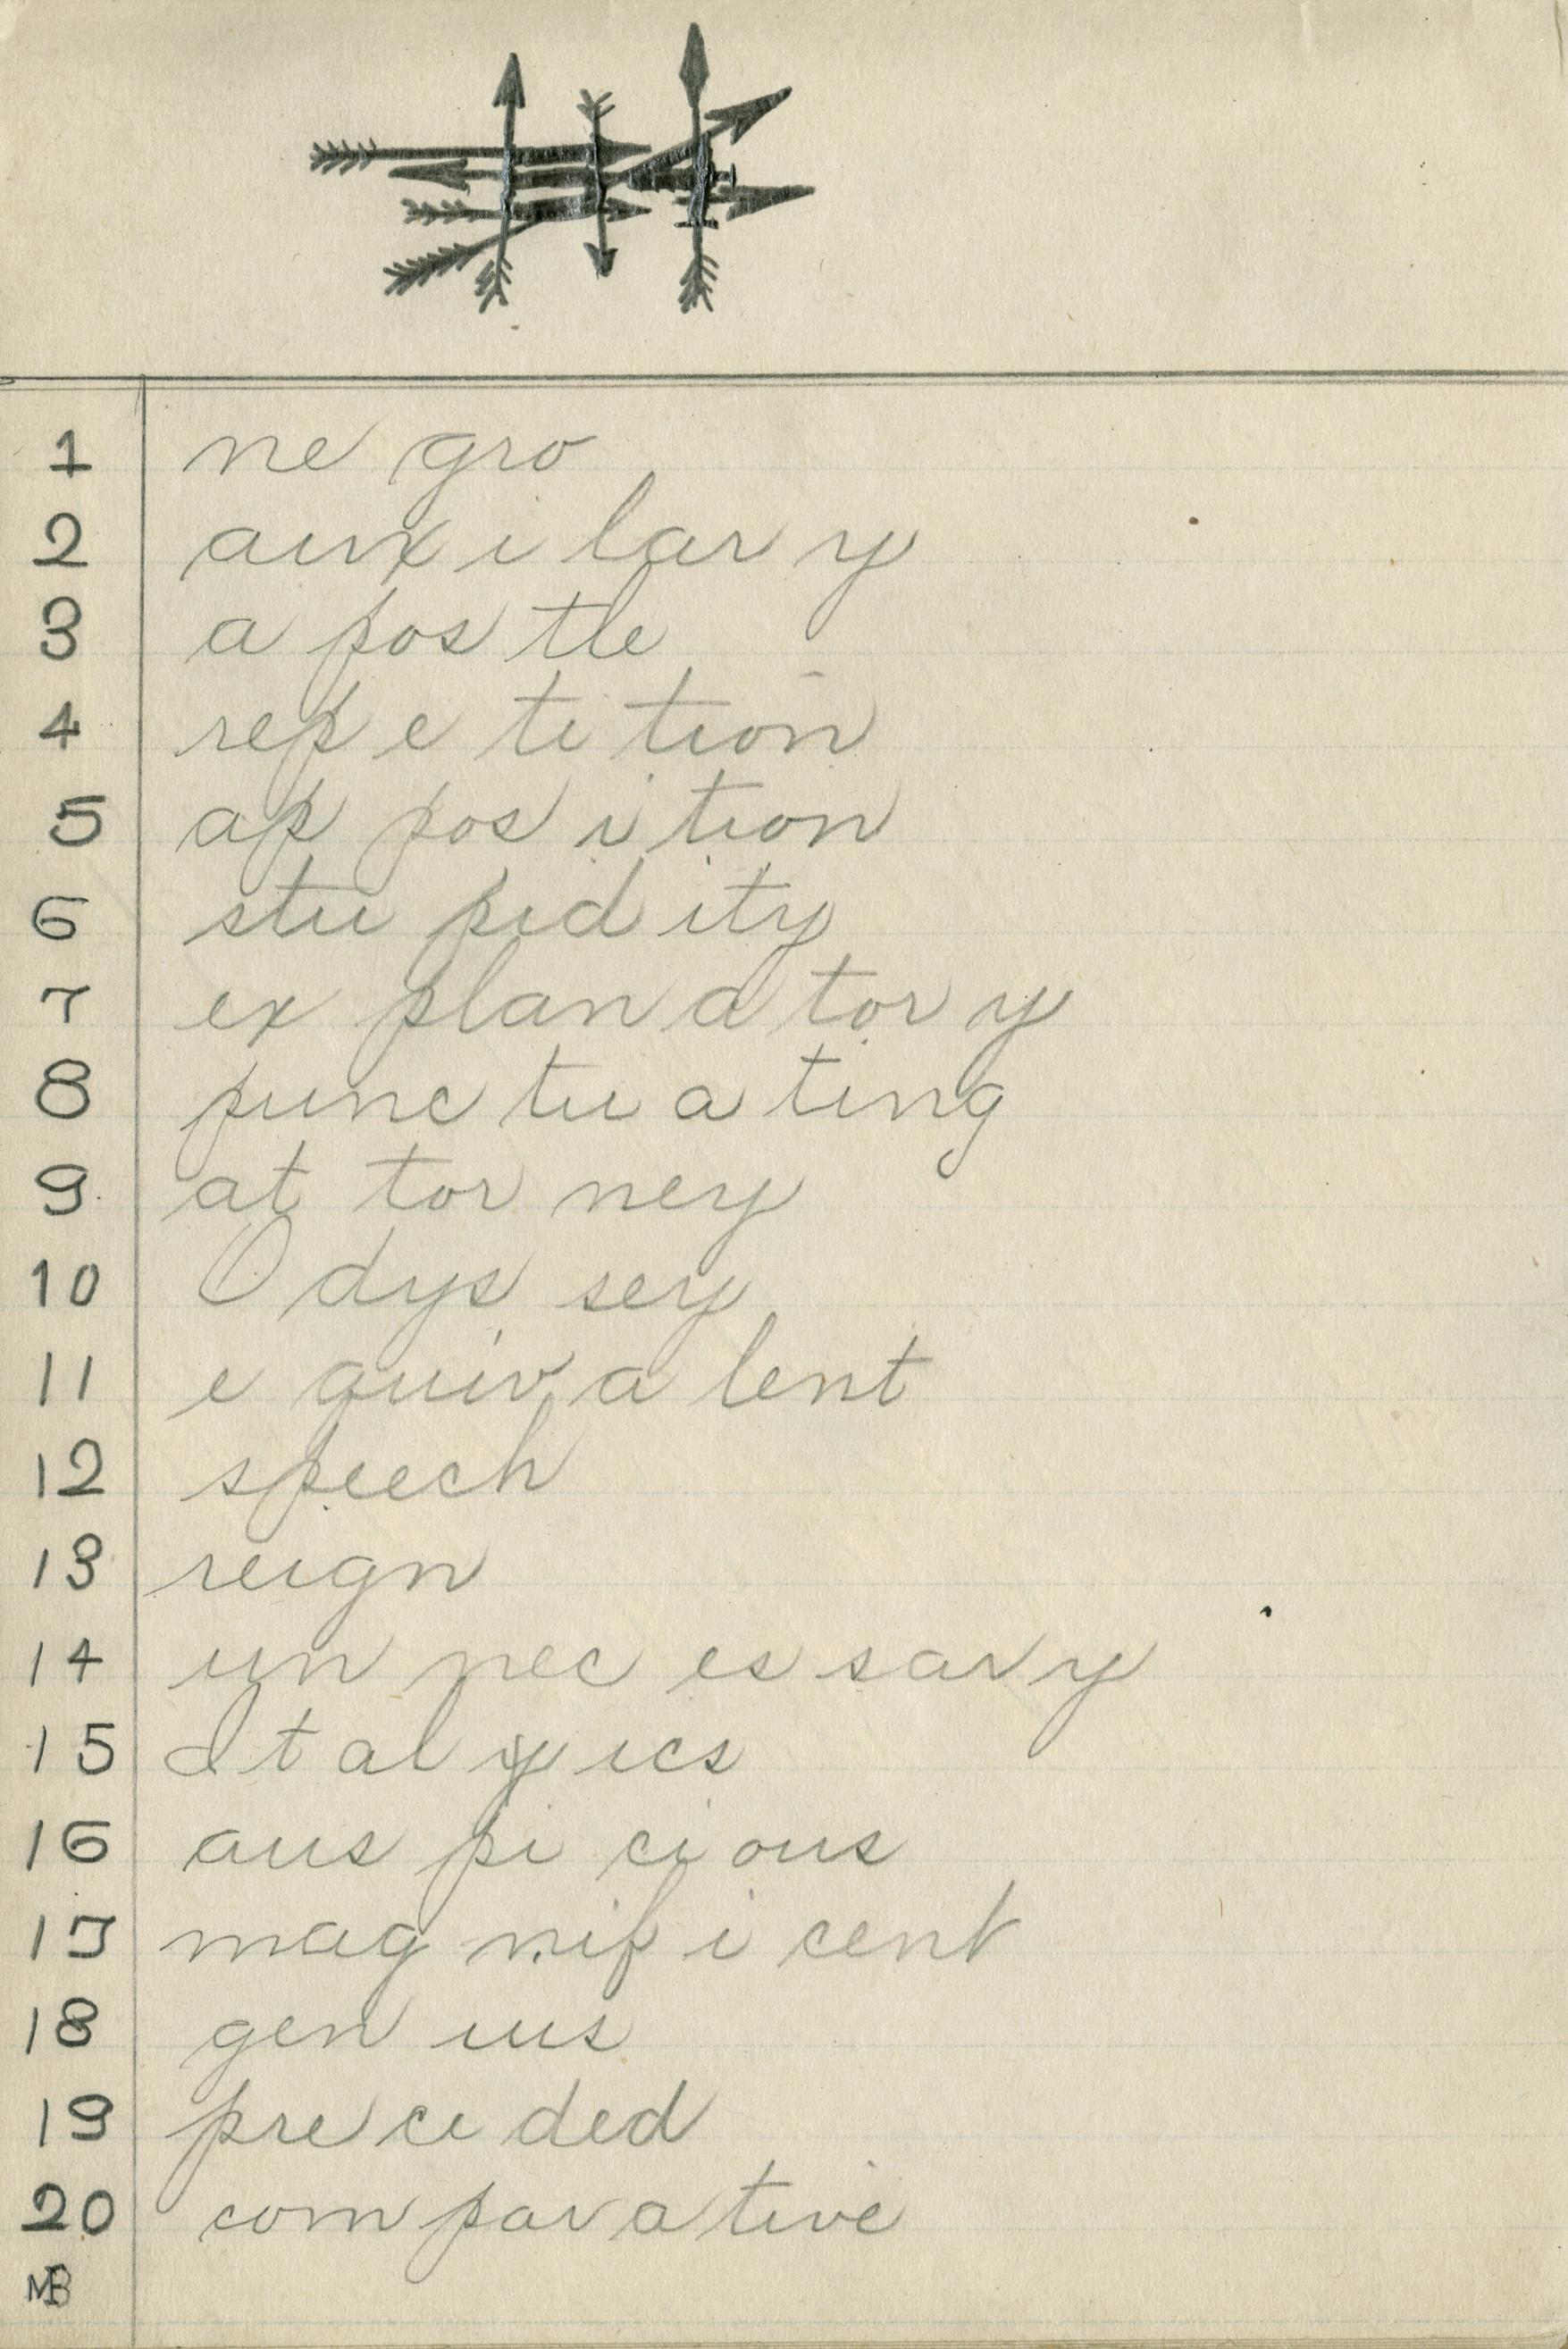 1 ne gro
2 aux i lar y
3 a pos tle
4 rep e ti tion
5 ap pos i tion
6 stu pid ity
7 ex plan a tor y
8 punc tu a ting
9 at tor ney
10 O dys sey
11 e quiv a lent
12 speech
13 reign
14 un nec es sar y
15 It al y ics
16 aus pi ci ous
17 mag nif i cent
18 gen ius
19 pre ce ded
20 com par a tive
MB